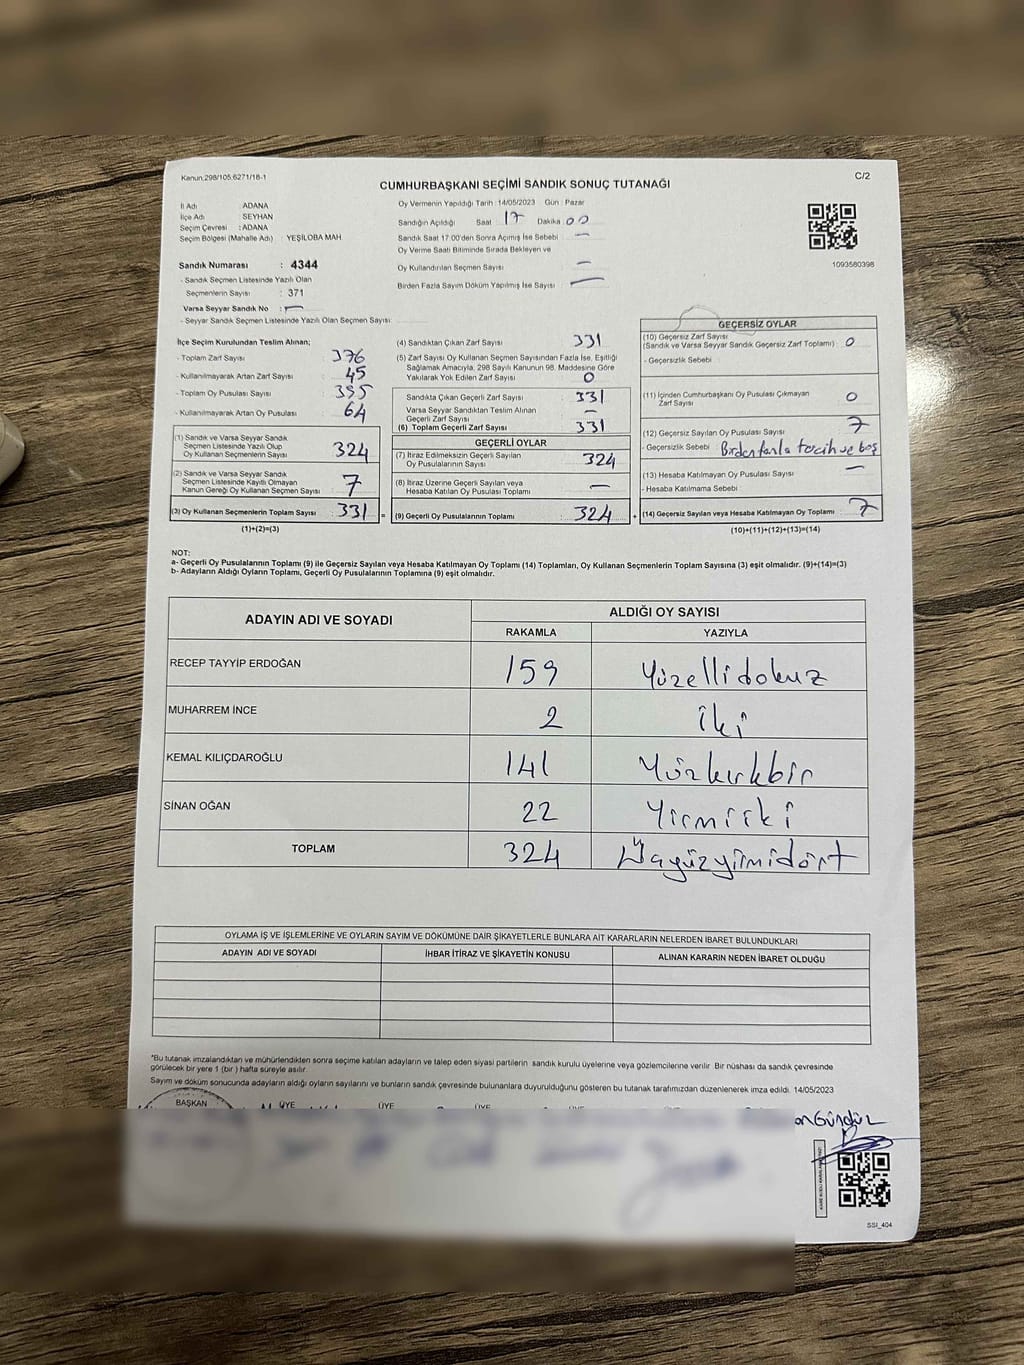 Kanun,298/105,6271/18-1
C/2
CUMHURBAŞKANI SEÇİMİ SANDIK SONUÇ TUTANAĞI
İl Adı : ADANA
İlçe Adı : SEYHAN
Seçim Çevresi : ADANA
Seçim Bölgesi (Mahalle Adı) : YEŞİLOBA MAH
Sandık Numarası : 4344
- Sandık Seçmen Listesinde Yazılı Olan
Seçmenlerin Sayısı : 371
Varsa Seyyar Sandık No : —
- Seyyar Sandık Seçmen Listesinde Yazılı Olan Seçmen Sayısı:
Oy Vermenin Yapıldığı Tarih : 14/05/2023 Gün : Pazar
Sandığın Açıldığı Saat 17 Dakika : 00
Sandık Saat 17:00'den Sonra Açımış İse Sebebi —
Oy Verme Saati Bitiminde Sırada Bekleyen ve
Oy Kullandırılan Seçmen Sayısı —
Birden Fazla Sayım Döküm Yapılmış İse Sayısı : —
1093580398
İlçe Seçim Kurulundan Teslim Alınan;
- Toplam Zarf Sayısı : 376
- Kullanılmayarak Artan Zarf Sayısı : 45
- Toplam Oy Pusulası Sayısı : 395
- Kullanılmayarak Artan Oy Pusulası : 64
(1) Sandık ve Varsa Seyyar Sandık
Seçmen Listesinde Yazılı Olup
Oy Kullanan Seçmenlerin Sayısı : 324
(2) Sandık ve Varsa Seyyar Sandık
Seçmen Listesinde Kayıtlı Olmayan
Kanun Gereği Oy Kullanan Seçmen Sayısı : 7
(3) Oy Kullanan Seçmenlerin Toplam Sayısı : 331 =
(1)+(2)=(3)
(4) Sandıktan Çıkan Zarf Sayısı : 331
(5) Zarf Sayısı Oy Kullanan Seçmen Sayısından Fazla İse, Eşitliği
Sağlamak Amacıyla, 298 Sayılı Kanunun 98. Maddesine Göre
Yakılarak Yok Edilen Zarf Sayısı : 0
Sandıkta Çıkan Geçerli Zarf Sayısı : 331
Varsa Seyyar Sandıktan Teslim Alınan
Geçerli Zarf Sayısı : —
(6) Toplam Geçerli Zarf Sayısı : 331
GEÇERLİ OYLAR
(7) İtiraz Edilmeksizin Geçerli Sayılan
Oy Pusulalarının Sayısı : 324
(8) İtiraz Üzerine Geçerli Sayılan veya
Hesaba Katılan Oy Pusulası Toplamı : —
(9) Geçerli Oy Pusulalarının Toplamı : 324 +
GEÇERSİZ OYLAR
(10) Geçersiz Zarf Sayısı
(Sandık ve Varsa Seyyar Sandık Geçersiz Zarf Toplamı) : 0
- Geçersizlik Sebebi :
(11) İçinden Cumhurbaşkanı Oy Pusulası Çıkmayan
Zarf Sayısı : 0
(12) Geçersiz Sayılan Oy Pusulası Sayısı : 7
- Geçersizlik Sebebi : Birden fazla tercih ve boş
(13) Hesaba Katılmayan Oy Pusulası Sayısı : —
- Hesaba Katılmama Sebebi :
(14) Geçersiz Sayılan veya Hesaba Katılmayan Oy Toplamı : 7
(10)+(11)+(12)+(13)=(14)
NOT:
a- Geçerli Oy Pusulalarının Toplamı (9) ile Geçersiz Sayılan veya Hesaba Katılmayan Oy Toplamı (14) Toplamları, Oy Kullanan Seçmenlerin Toplam Sayısına (3) eşit olmalıdır. (9)+(14)=(3)
b- Adayların Aldığı Oyların Toplamı, Geçerli Oy Pusulalarının Toplamına (9) eşit olmalıdır.
ADAYIN ADI VE SOYADI
ALDIĞI OY SAYISI
RAKAMLA YAZIYLA
RECEP TAYYİP ERDOĞAN 159 Yüzellidokuz
MUHARREM İNCE 2 iki
KEMAL KILIÇDAROĞLU 141 Yüzkırkbir
SİNAN OĞAN 22 Yirmiiki
TOPLAM 324 Üçyüzyirmidört
OYLAMA İŞ VE İŞLEMLERİNE VE OYLARIN SAYIM VE DÖKÜMÜNE DAİR ŞİKAYETLERLE BUNLARA AİT KARARLARIN NELERDEN İBARET BULUNDUKLARI
ADAYIN ADI VE SOYADI İHBAR İTİRAZ VE ŞİKAYETİN KONUSU ALINAN KARARIN NEDEN İBARET OLDUĞU
*Bu tutanak imzalandıktan ve mühürlendikten sonra seçime katılan adayların ve talep eden siyasi partilerin sandık kurulu üyelerine veya gözlemcilerine verilir. Bir nüshası da sandık çevresinde
görülecek bir yere 1 (bir ) hafta süreyle asılır.
Sayım ve döküm sonucunda adayların aldığı oyların sayılarını ve bunların sandık çevresinde bulunanlara duyurulduğunu gösteren bu tutanak tarafımızdan düzenlenerek imza edildi. 14/05/2023
BAŞKAN ÜYE ÜYE ÜYE ÜYE
Gündüz
SSI_404